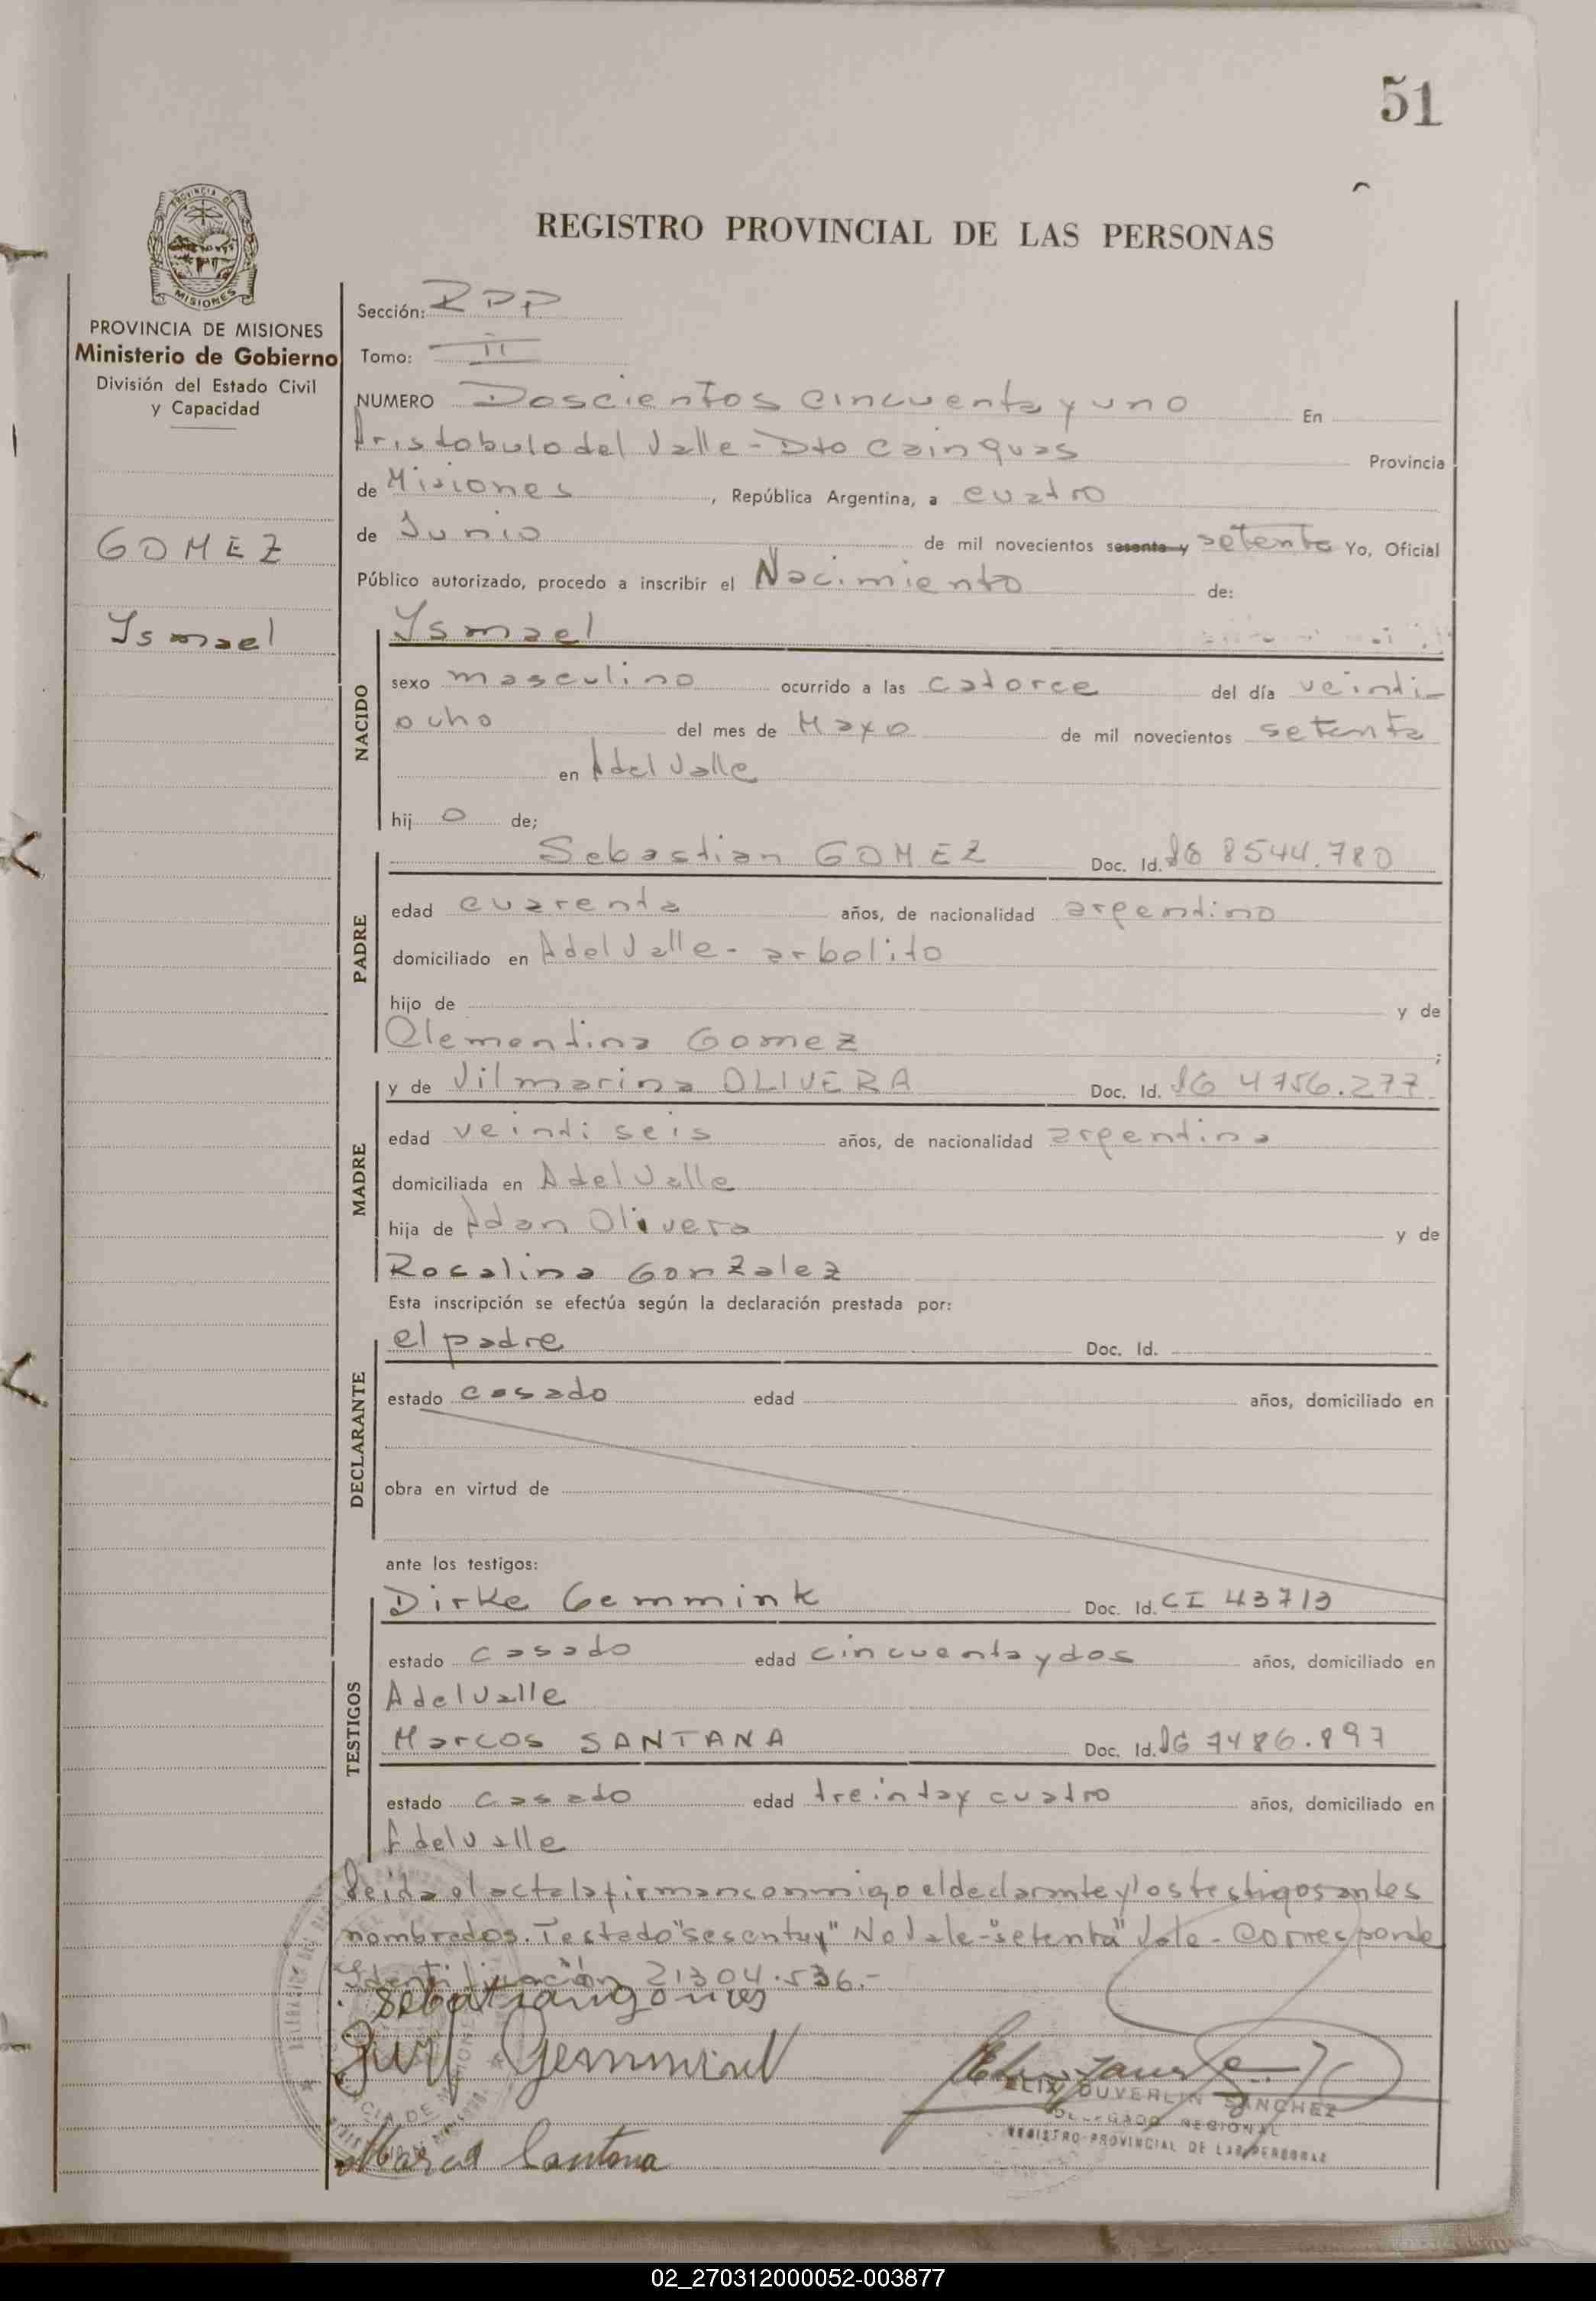 51
PROVINCIA DE
MISIONES
PROVINCIA DE MISIONES
Ministerio de Gobierno
División del Estado Civil
y Capacidad
GOMEZ
Ysmael
REGISTRO PROVINCIAL DE LAS PERSONAS
Sección: RPP
Tomo: II
NUMERO Doscientos cincuenta y uno En
Aristobulo del Valle - Dto Cainguas Provincia
de Misiones, República Argentina, a cuatro
de Junio de mil novecientos sesenta y setenta Yo, Oficial
Público autorizado, procedo a inscribir el Nacimiento de:
NACIDO
Ysmael
sexo masculino ocurrido a las catorce del día veinti-
ocho del mes de Mayo de mil novecientos setenta
en AdelValle
hij o de;
PADRE
Sebastian GOMEZ Doc. Id. 8544.780
edad cuarenta años, de nacionalidad argentino
domiciliado en AdelValle - arbolito
hijo de y de
Clementina Gomez ;
MADRE
y de Vilmarina OLIVERA Doc. Id. 4756.277
edad veinti seis años, de nacionalidad argentina
domiciliada en AdelValle
hija de Adan Olivera y de
Rosalina Gonzalez
Esta inscripción se efectúa según la declaración prestada por:
DECLARANTE
el padre Doc. Id.
estado casado edad años, domiciliado en
obra en virtud de
ante los testigos:
TESTIGOS
Dirke Gemmink Doc. Id. CI 43713
estado casado edad cincuenta y dos años, domiciliado en
AdelValle
Marcos SANTANA Doc. Id. 7486.897
estado casado edad treinta y cuatro años, domiciliado en
AdelValle
leida el acta la firman conmigo el declarante y los testigos antes
nombrados. Testado "sesenta y" No Vale - "setenta" Vale - Corresponde
Identificación 21304.536.-
sebatiangomes
Gemmink
FELIX DUVERLIN SANCHEZ
DELEGADO REGIONAL
REGISTRO PROVINCIAL DE LAS PERSONAS
Marcos Santana
02_270312000052-003877